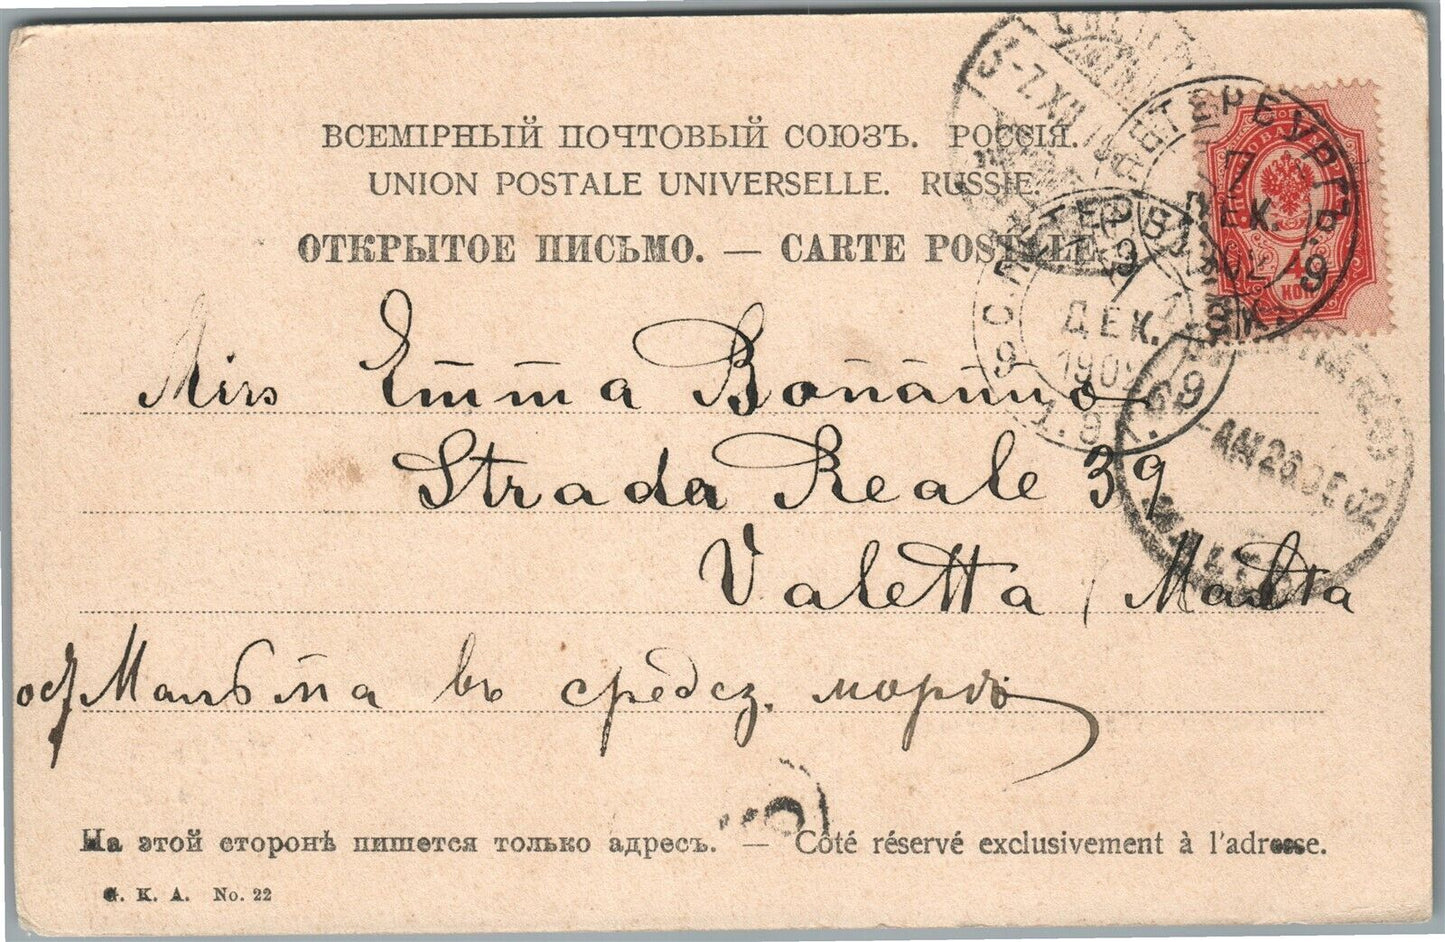 ВСЕМІРНЫЙ ПОЧТОВЫЙ СОЮЗЪ. РОССІЯ.
UNION POSTALE UNIVERSELLE. RUSSIE.
ОТКРЫТОЕ ПИСЬМО. — CARTE POSTALE.
7
ДЕК.
1902
4
КОП
С.ПЕТЕРБУРГЪ
ДЕК.
1902
Mirs Emma Bonanno
Strada Reale 39
Valetta, Malta
AM 26 DE 02
MALTA
ост Мальта въ средез. морѣ
На этой сторонѣ пишется только адресъ. — Côté réservé exclusivement à l'adresse.
G. K. A. No. 22